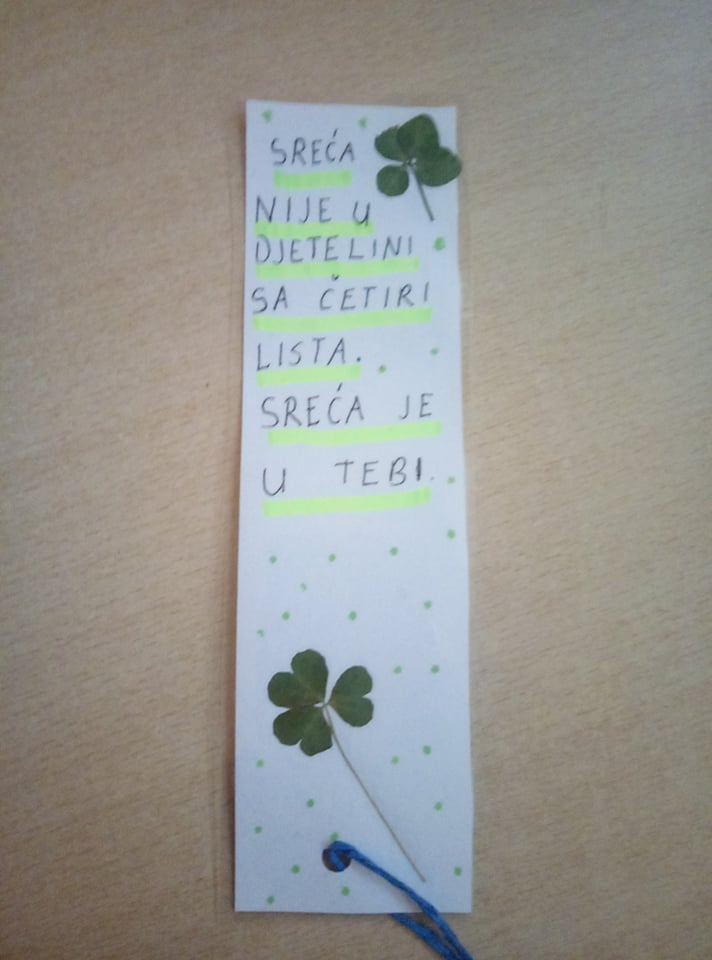 SREĆA
NIJE U
DJETELINI
SA ČETIRI
LISTA.
SREĆA JE
U TEBI.